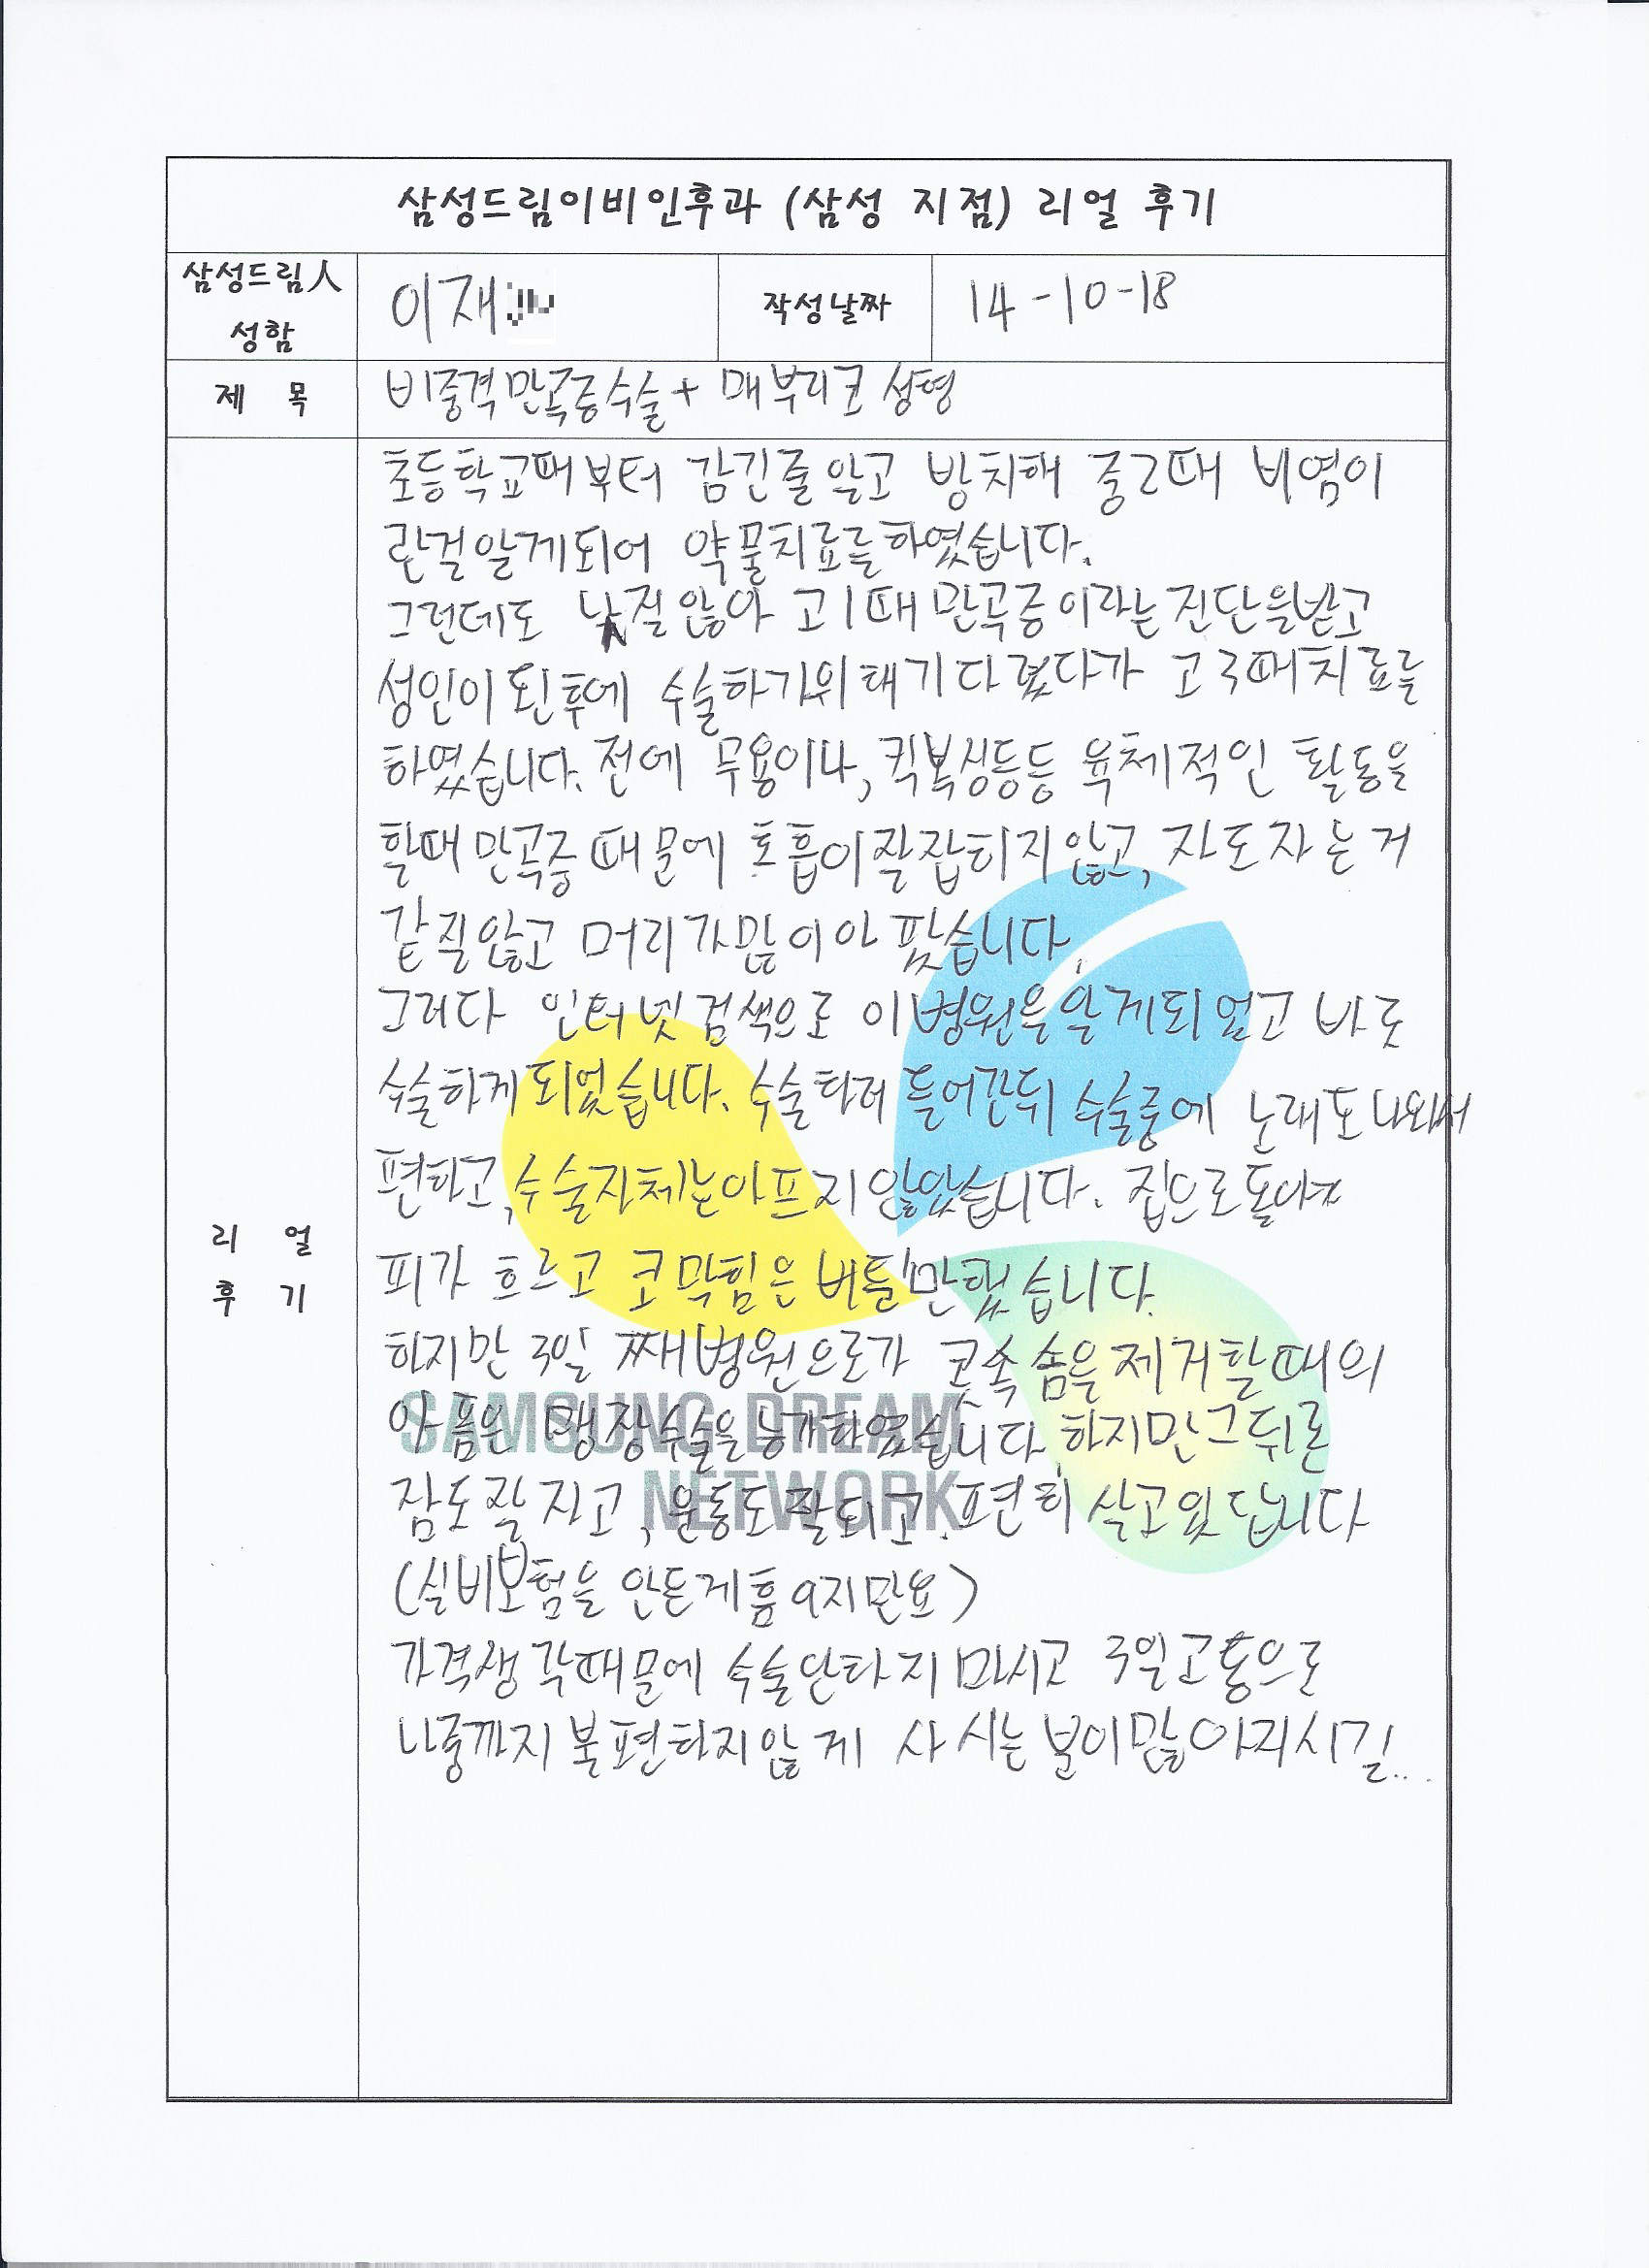 삼성드림이비인후과 (삼성 지점) 리얼 후기
삼성드림人 성함
이재
작성날짜
14-10-18
제 목
비중격만곡증수술 + 매부리코 성형
리 얼 후 기
초등학교때부터 감긴줄 알고 방치해 중2때 비염이
란걸알게되어 약물치료를하였습니다.
그런데도 낫질않아 고1때 만곡증이라는진단을받고
성인이 된후에 수술하기위해기다렸다가 고3때치료를
하였습니다. 전에 무용이나, 킥복싱등등 육체적인 활동을
할때 만곡증때문에 호흡이잘잡히지않고, 자도자는거
같질않고 머리가많이아팠습니다.
그러다 인터넷검색으로 이병원을알게되었고 바로
수술하게되었습니다. 수술하러 들어간뒤 수술중에 노래도나와서
편하고, 수술자체는아프지않았습니다. 집으로돌아가
피가 흐르고 코막힘은버틸만했습니다.
하지만 3일째병원으로가 콧속솜을제거할때의
아픔은 맹장수술을능가하였습니다. 하지만그뒤론
잠도잘자고, 운동도잘되고. 편히살고있답니다
(실비보험을 안든게흠이지만요)
가격생각때문에 수술안하지마시고 3일고통으로
나중까지불편하지않게 사시는분이많아지시길...
SAMSUNG DREAM
NETWORK